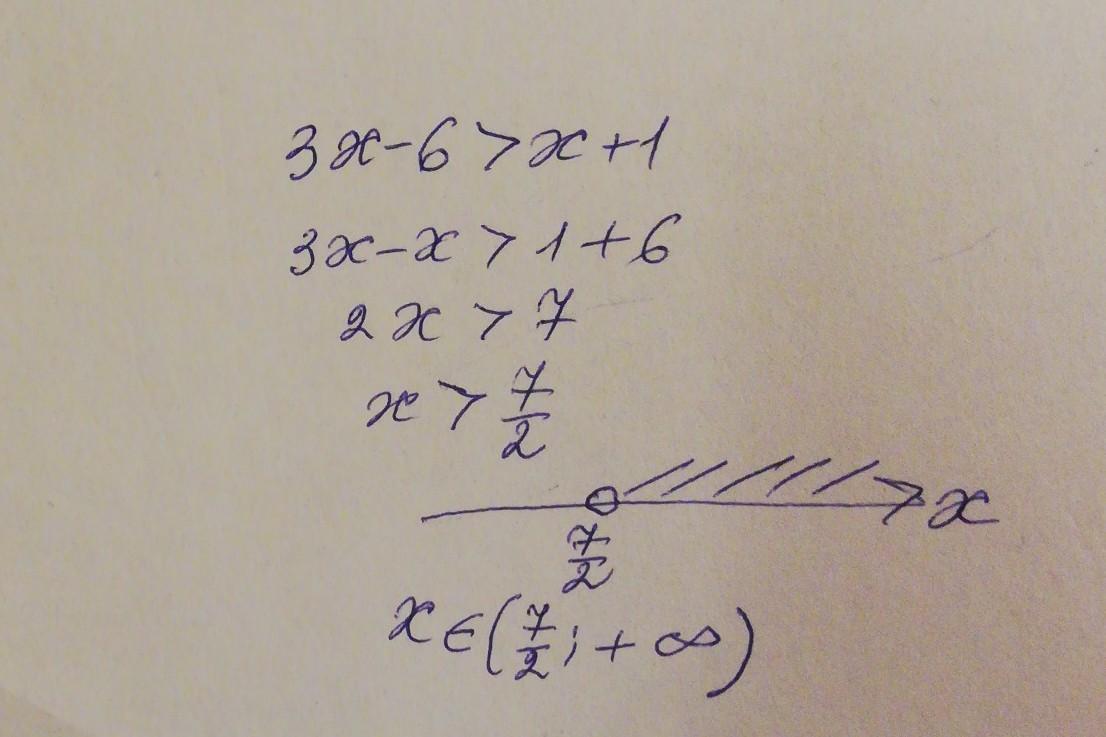 3x-6>x+1
3x-x>1+6
2x>7
x>7/2
x
7/2
x∈(7/2;+∞)